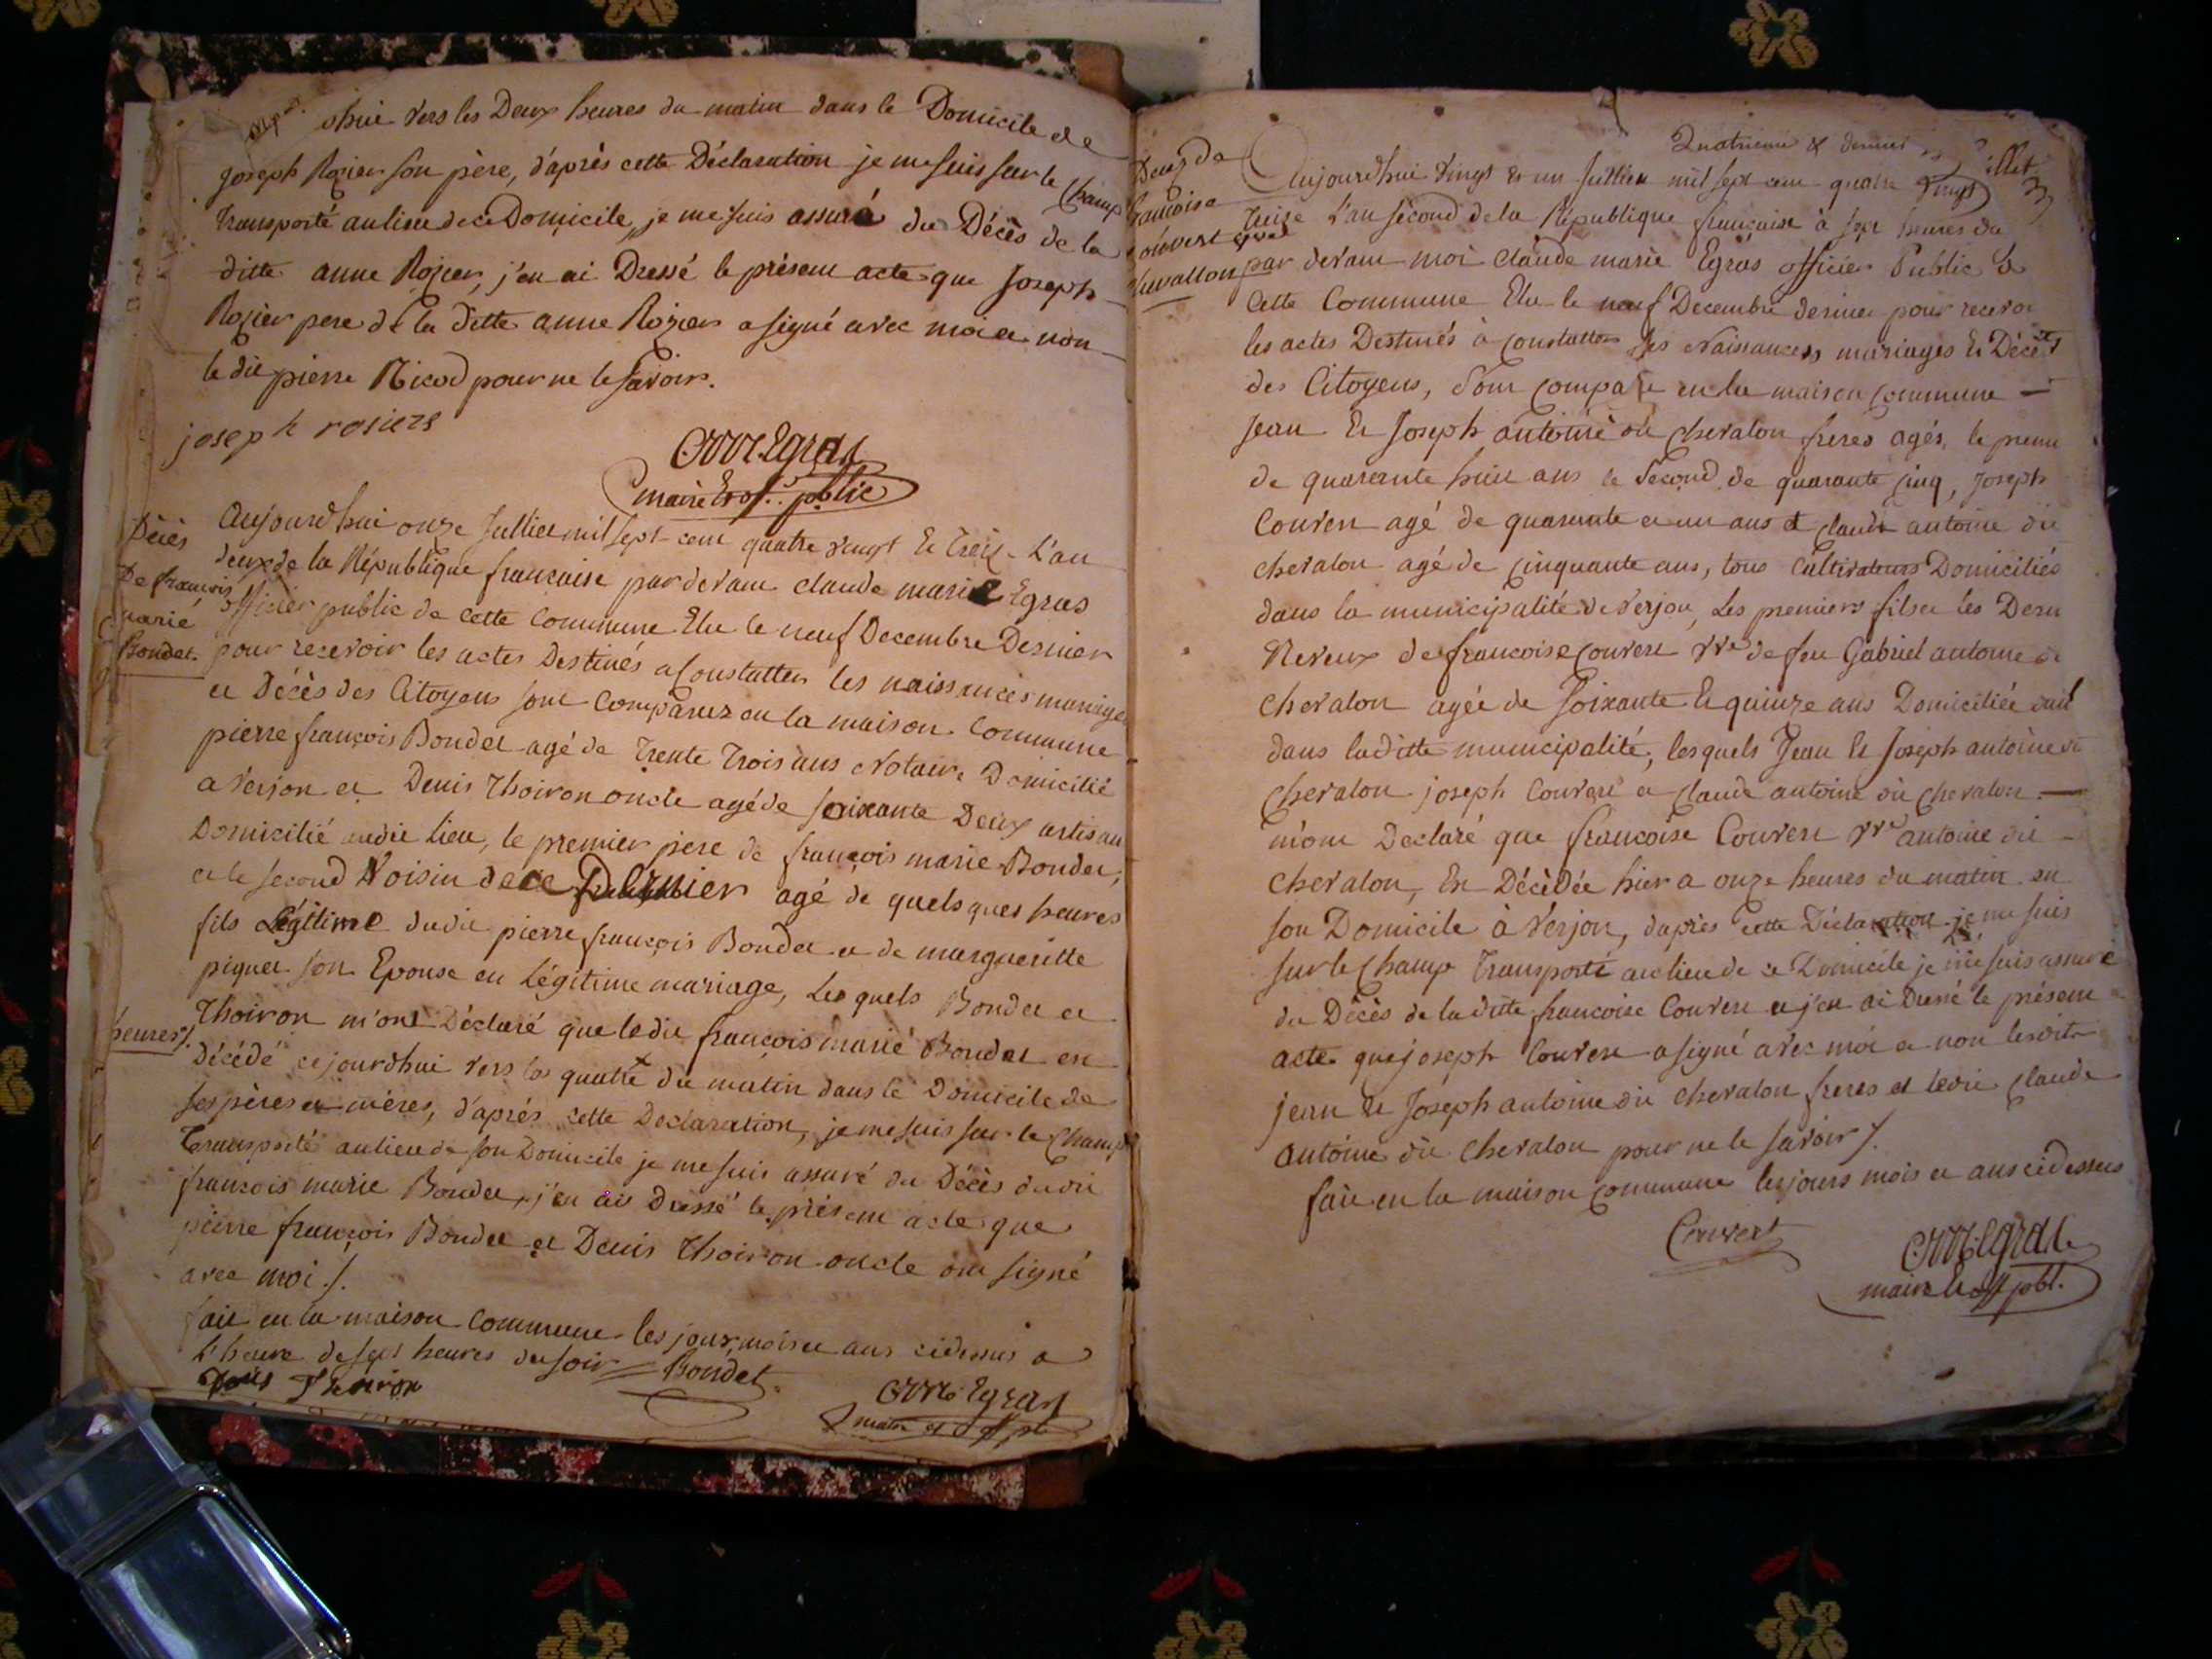 dhui vers les Deux heures du matin dans le Domicile de
joseph Rozier son père, d'après cette Déclaration je me suis sur le champ
transporté au lieu de ce Domicile, je me suis assuré du Décès de la
ditte anne Rozier, j'en ai Dressé le présent acte que joseph
Rozier pere de la ditte anne Rozier a signé avec moi et non
le dit pierre Nicod pour ne le savoir.
joseph rosiers
CMEgras
maire et of. public
Décès
De françois
marie
Bondet.
Aujourdhui onze Juillet mil sept cent quatre vingt et treize L'an
deux de la République française par devant claude marie Egras
officier public de cette Commune Elu le neuf Decembre Dernier
pour recevoir les actes Destinés a Constatter les naissances mariages
et Décès des Citoyens sont Comparuz en la maison Commune
pierre françois Bondet agé de trente trois ans Notaire Domicilié
a Verjon et Denis Thoiron oncle agé de soixante Deux artisan
Domicilié audit Lieu, le premier pere de françois marie Bondet,
et le second Voisin de ce Dernier agé de quelsques heures
fils Légitime dudit pierre françois Bondet et de margueritte
piquet son Epouse en Légitime mariage, Lesquels Bondet et
Thoiron m'ont Déclaré que ledit françois marié Bondet est
heures/.
Décédé cejourdhui vers les quatre x du matin dans le Domicile de
ses pères et mères, d'après cette Declaration, je me suis sur le champ
Transporté au lieu de son Domicile je me suis assuré du Décès dudit
françois marie Bondet, j'en ai Dressé le présent acte que
pierre françois Bondet et Denis Thoiron oncle ont signé
avec moi /.
fait en la maison Commune les jour, mois et ans cidessus a
L'heure de sept heures du soir Bondet.
Denis Thoiron
CMEgras
maire et off pb
Quatrieme & dernier
3
Deuz de
francoise
Convert
Chevallon
Aujourdhui vingt et un Juillet mil sept cent quatre vingt
treize L'an second de la République française à sept heures du
par devant moi claude marie Egras officier Public de
cette Commune Elu le neuf Decembre dernier pour recevoir
les actes Destinés à constatter les Naissances, mariages et Décès
des Citoyens, sont comparu en la maison commune
Jean et Joseph antoine dit chevalon freres agés, le premier
de quarante huit ans le second de quarante cinq, joseph
Convert agé de quarante et un ans et claude antoine dit
chevalon agé de cinquante ans, tous Cultivateurs Domiciliés
dans la municipalité de Verjon, Les premiers fils et les Dern
Neveux de francoise Convert vve de feu Gabriel antoine dit
chevalon agée de soixante et quinze ans Domiciliée
dans laditte municipalité, lesquels Jean et Joseph antoine dit
chevalon joseph Convert et claude antoine dit chevalon
m'ont Declaré que francoise Convert vve antoine dit
chevalon, Est Décèdée hier a onze heures du matin en
son Domicile à Verjon, d'après cette Déclaration je me suis
sur le champ Transporté au lieu de ce Domicile je me suis assuré
du Décès de la ditte francoise Convert et j'en ai Dressé le présent
acte que joseph Convert a signé avec moi et non lesdits
jean et Joseph antoine dit chevalon freres et ledit claude
antoine dit chevalon pour ne le savoir /.
fait en la maison commune les jours mois et ans cidessus
Convert
CMEgras
maire et off publ.